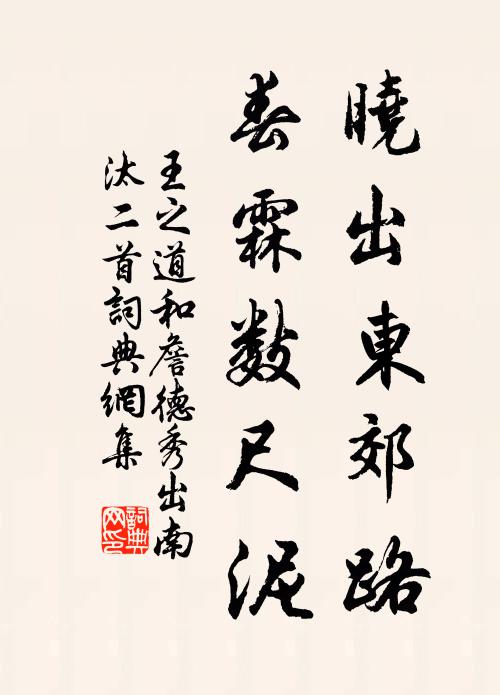 曉出東郊路
春霖數尺泥
王之道和詹德秀出南
汰二首詞典網集
詞典
网印